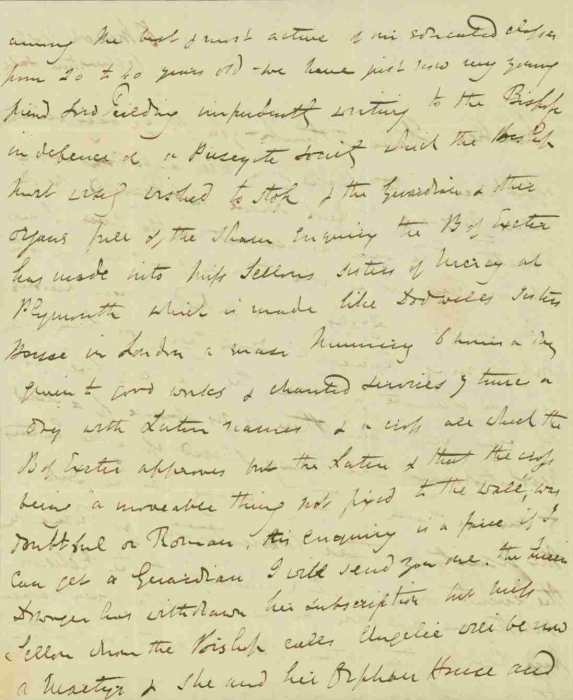 among the best & most active of our educated classes
from 20 to 40 years old - we have just now my young
friend Lord Feilding impudently writing to the Bishop
in defence of a Puseyite Society which the Bishop
most wisely wished to stop & the Guardian & other
organs full of the sham enquiry the B of Exeter
has made into Miss Sellons Sisters of Mercy at
Plymouth which is made like Dodwells Sisters
House in London a Nunnery 6 hours a Day
given to good works & chanted services 7 times a
Day with Latin names & a cross all which the
B of Exeter approves but the Latin & that the cross
being "a moveable thing not fixed to the wall", was
doubtful or Roman, this enquiry is a farce if I
can get a Guardian I will send you one. the Queen
Dowager has withdrawn her subscription but Miss
Sellon whom the Bishop calls Angelic will be now
a Martyr & she and her Orphan House and